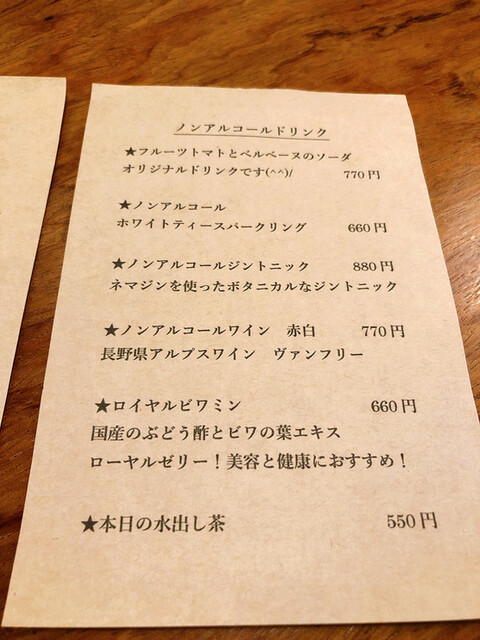 ノンアルコールドリンク
★フルーツトマトとベルベーヌのソーダ
オリジナルドリンクです(^^)/ 770円
★ノンアルコール
ホワイトティースパークリング 660円
★ノンアルコールジントニック 880円
ネマジンを使ったボタニカルなジントニック
★ノンアルコールワイン 赤白 770円
長野県アルプスワイン ヴァンフリー
★ロイヤルビワミン 660円
国産のぶどう酢とビワの葉エキス
ローヤルゼリー！美容と健康におすすめ！
★本日の水出し茶 550円